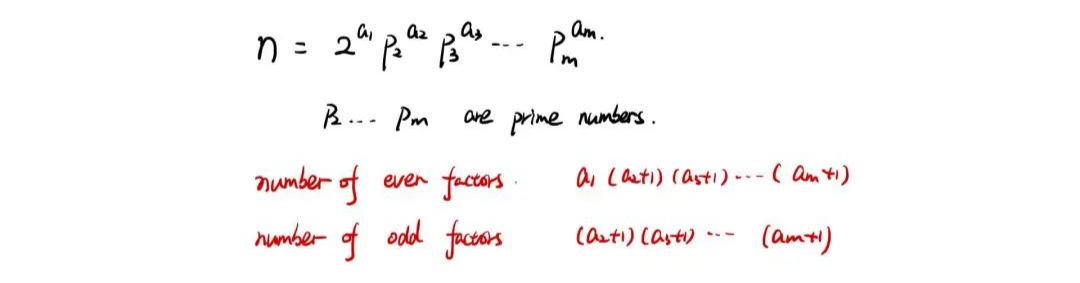 n = 2^{a_1} p_2^{a_2} p_3^{a_3} --- p_m^{a_m}.
p_2 --- p_m are prime numbers.
number of even factors. a_1 (a_2+1) (a_3+1) --- (a_m+1)
number of odd factors (a_2+1) (a_3+1) --- (a_m+1)